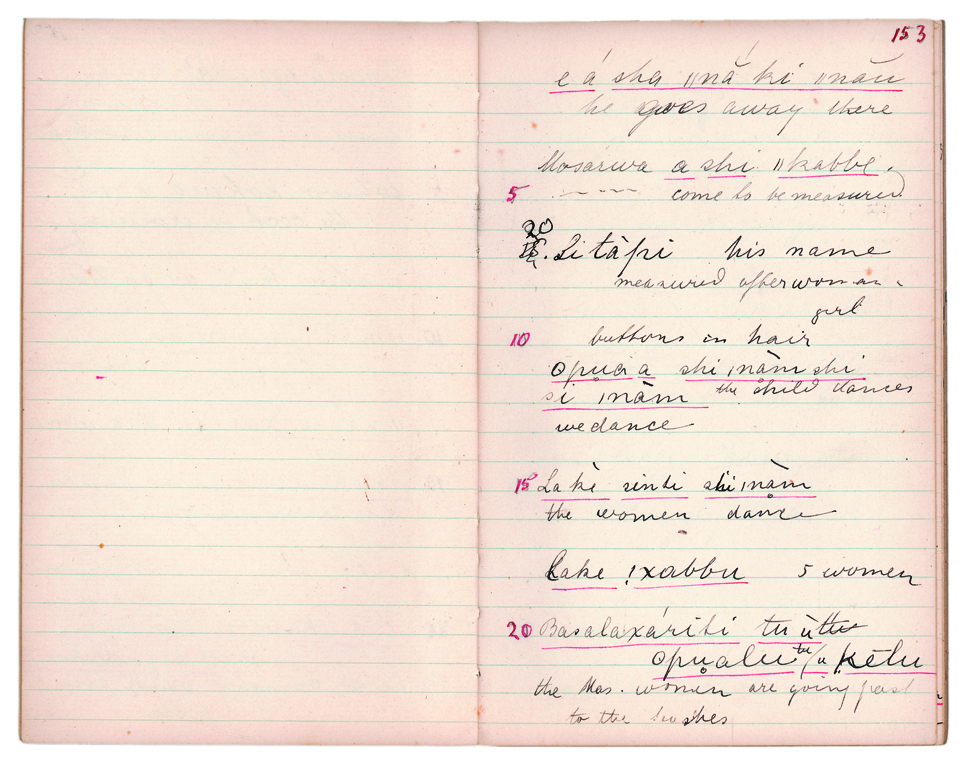 153
é á sha ǁnā́ ki ǁnāū
he goes away there
Mosarwa a shi ǁkabbe.
5 come to be measured
20. Litàpi his name
measured after woman.
girl
10 buttons in hair
opua a shi ǀnām shi
si ǀnām the child dances
we dance
15 Lakè sinti shi ǀnàm
the women dance
Lake !xabbu 5 women
20 Basalaxáriti tu ù
opu̥alu tu /u ḳelu
the Mas. women are going past
to the bushes